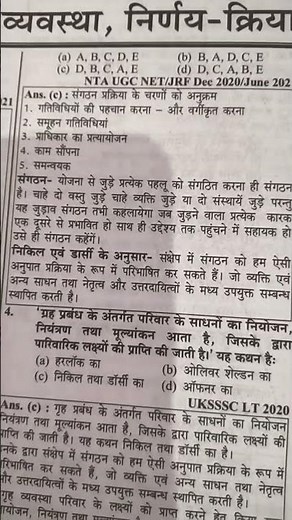 व्यवस्था, निर्णय-क्रिया
(a) A, B, C, D, E (b) B, A, D, C, E
(c) D, B, C, A, E (d) D, C, A, B, E
NTA UGC NET/JRF Dec 2020/June 202
021
Ans. (c) : संगठन प्रक्रिया के चरणों को अनुक्रम
1. गतिविधियों की पहचान करना – और वर्गीकृत करना
2. समूहन गतिविधियां
3. प्राधिकार का प्रत्यायोजन
4. काम सौंपना
5. समन्वयक
संगठन- योजना से जुड़े प्रत्येक पहलू को संगठित करना ही संगठन
है। चाहे दो वस्तु जुड़े चाहे व्यक्ति जुड़े या दो संस्थायें जुड़े परन्तु
यह जुड़ाव संगठन तभी कहलायेगा जब जुड़ने वाला प्रत्येक कारक
एक दूसरे से प्रभावित हो साथ ही उद्देश्य तक पहुंचने में सहायक हो
उसे ही संगठन कहेंगें।
निकिल एवं डार्सी के अनुसार- संक्षेप में संगठन को हम ऐसी
अनुपात प्रक्रिया के रूप में परिभाषित कर सकते हैं। जो व्यक्ति एवं
अन्य साधन तथा नेतृत्व और उत्तरदायित्वों के मध्य उपयुक्त सम्बन्ध
स्थापित करती है।
4. 'ग्रह प्रबंध के अंतर्गत परिवार के साधनों का नियोजन,
नियंत्रण तथा मूल्यांकन आता है, जिसके द्वारा
पारिवारिक लक्ष्यों की प्राप्ति की जाती है।' यह कथन है:
(a) हरलॉक का (b) ओलिवर शेल्डन का
(c) निकिल तथा डॉर्सी का (d) ऑफनर का
UKSSSC LT 2020
Ans. (c) : गृह प्रबंध के अंतर्गत परिवार के साधनों का नियोजन
नियंत्रण तथा मूल्यांकन आता है, जिसके द्वारा पारिवारिक लक्ष्यों की
प्राप्ति की जाती है। यह कथन निकिल तथा डॉर्सी का है।
नके द्वारा संक्षेप में संगठन को हम ऐसी अनुपात प्रक्रिया के रूप में
रिभाषित कर सकते हैं, जो व्यक्ति एवं अन्य साधन तथा नेतृत्व
और उत्तरदायित्वों के मध्य उपयुक्त सम्बन्ध स्थापित करती है।
गृह व्यवस्था परिवार के लक्ष्यों को प्राप्त करने हेतु किया
योजन, नियंत्रण तथा